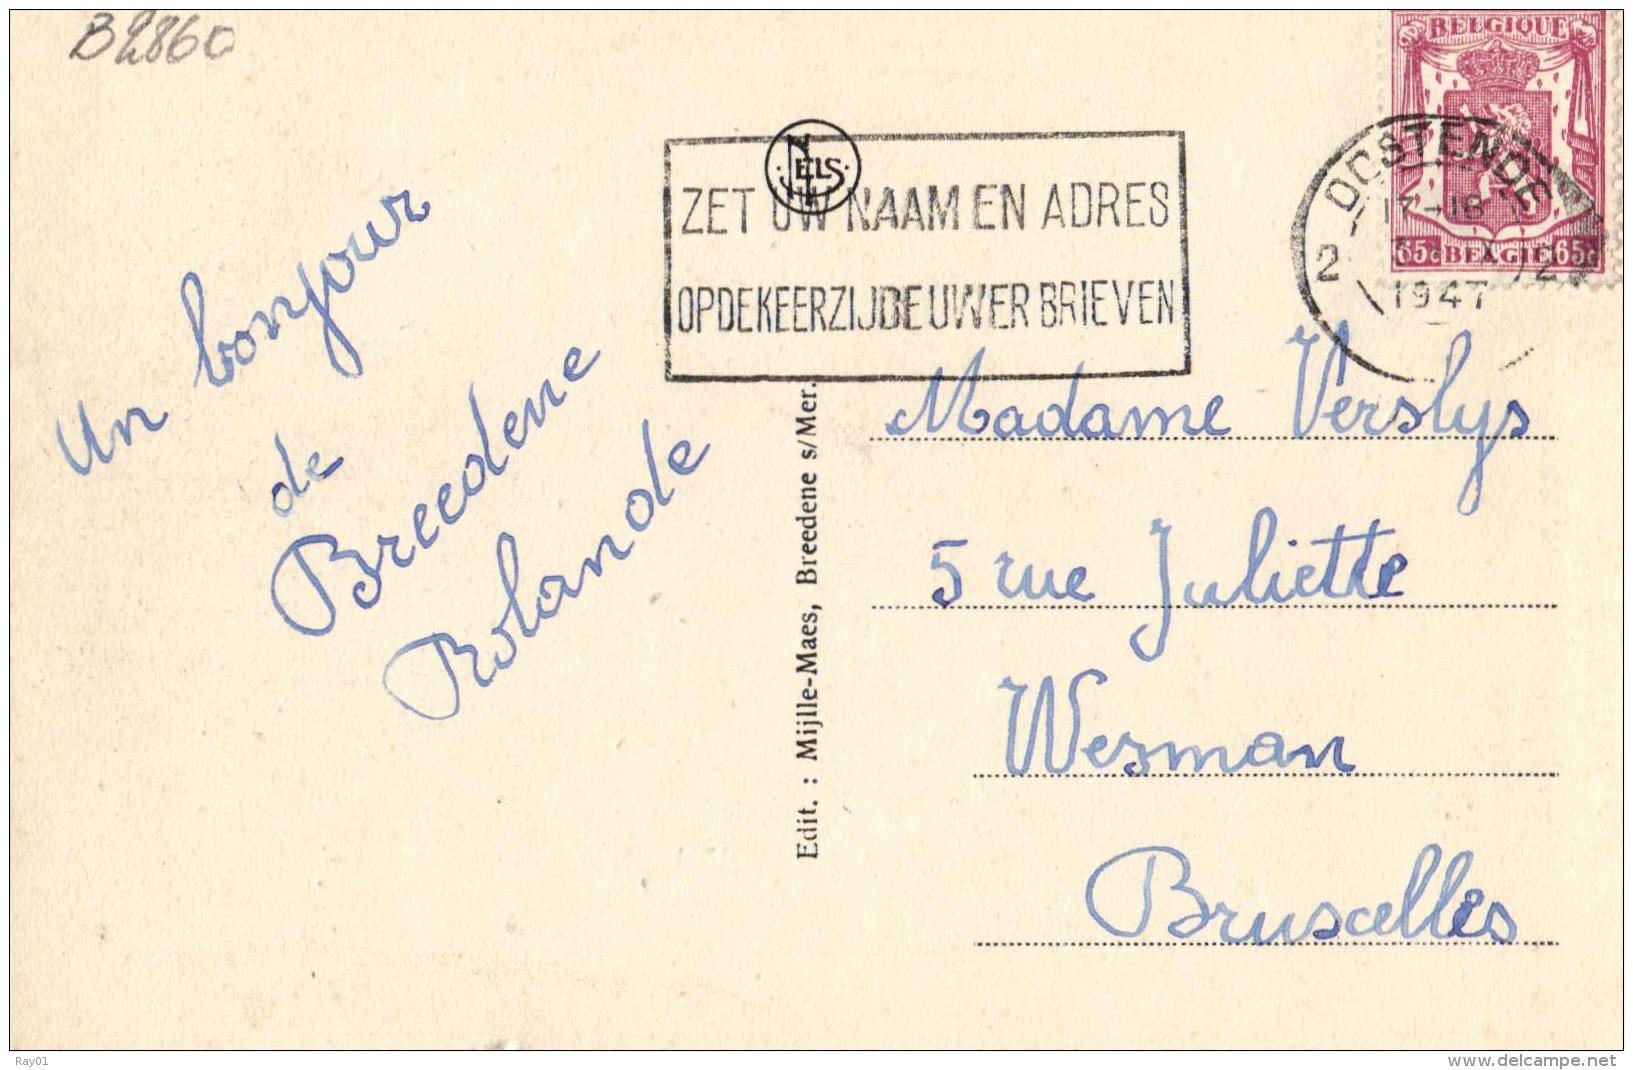 B2860
BELGIQUE
65c BELGIE 65c
OOSTENDE
17-18
2 X 2
1947
NELS
ZET UW NAAM EN ADRES
OP DE KEERZIJDE UWER BRIEVEN
Un bonjour
de
Breedene
Rolande
Edit. : Mijlle-Maes, Breedene s/Mer.
Madame Verslys
5 rue Juliette
Wesman
Bruxelles
Ray01
delcampe.net